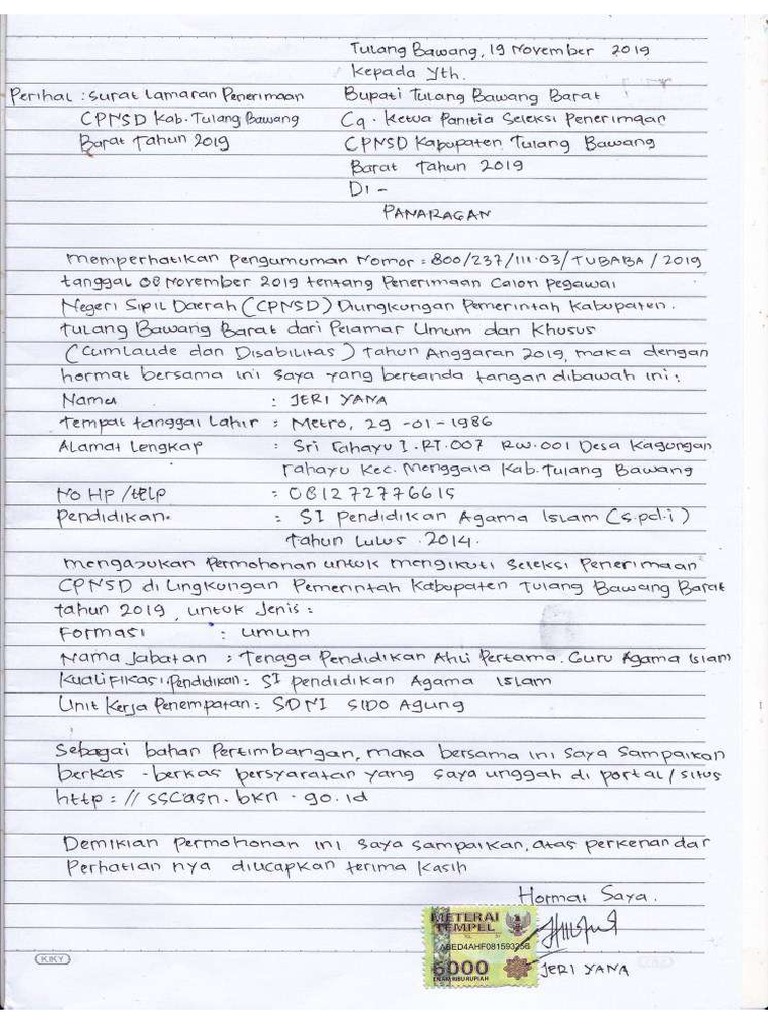 Tulang Bawang, 19 November 2019
Kepada Yth.
Perihal : Surat Lamaran Penerimaan Bupati Tulang Bawang Barat
CPNSD Kab. Tulang Bawang Cq. Ketua Panitia Seleksi Penerimaan
Barat Tahun 2019 CPNSD Kabupaten Tulang Bawang
Barat Tahun 2019
Di -
PANARAGAN
Memperhatikan Pengumuman Nomor : 800/237/111.03/TUBABA/2019
tanggal 08 November 2019 tentang Penerimaan Calon Pegawai
Negeri Sipil Daerah (CPNSD) Diungkungan Pemerintah Kabupaten.
Tulang Bawang Barat dari Pelamar Umum dan Khusus
(Cumlaude dan Disabilitas) Tahun Anggaran 2019, maka dengan
hormat bersama ini saya yang bertanda tangan dibawah ini :
Nama : JERI YANA
Tempat tanggal Lahir : Metro, 29 -01-1986
Alamat Lengkap : Sri Rahayu I. RT.007 RW.001 Desa Kagungan
Rahayu Kec. Menggala Kab. Tulang Bawang
No HP /telp : 081272776615
Pendidikan. : SI Pendidikan Agama Islam (S.pd.i)
Tahun Lulus. 2014.
Mengajukan Permohonan untuk mengikuti Seleksi Penerimaan
CPNSD di Lingkungan Pemerintah Kabupaten Tulang Bawang Barat
tahun 2019, untuk Jenis :
Formasi : Umum
Nama Jabatan : Tenaga Pendidikan Ahli Pertama. Guru Agama Islam
Kualifikasi Pendidikan : SI Pendidikan Agama Islam
Unit Kerja Penempatan : SDNI SIDO Agung
Sebagai bahan Pertimbangan, maka bersama ini saya sampaikan
berkas -berkas persyaratan yang saya unggah di portal/situs
http : // sscasn. bkn . go.id
Demikian Permohonan ini saya sampaikan, atas perkenan dan
Perhatian nya diucapkan terima kasih
Hormat Saya.
METERAI
TEMPEL
ABED4AHF081593256
6000
ENAM RIBU RUPIAH
JERI YANA
KIKY